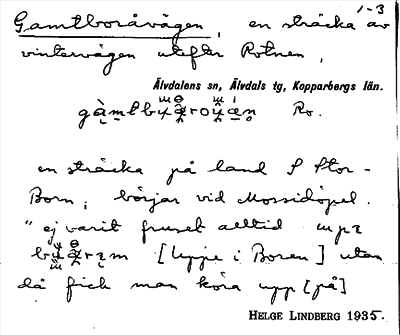 1-3
Gamtboråvägen, en sträcka av
vintervägen utefter Rotnen,
Älvdalens sn, Älvdals tg, Kopparbergs län.
Ro.
en sträcka på land S Stor-
Born; börjar vid Mossidöpel.
"ej varit fruset alltid
[uppe i Boren] utan
då fick man köra upp [på]
HELGE LINDBERG 1935.